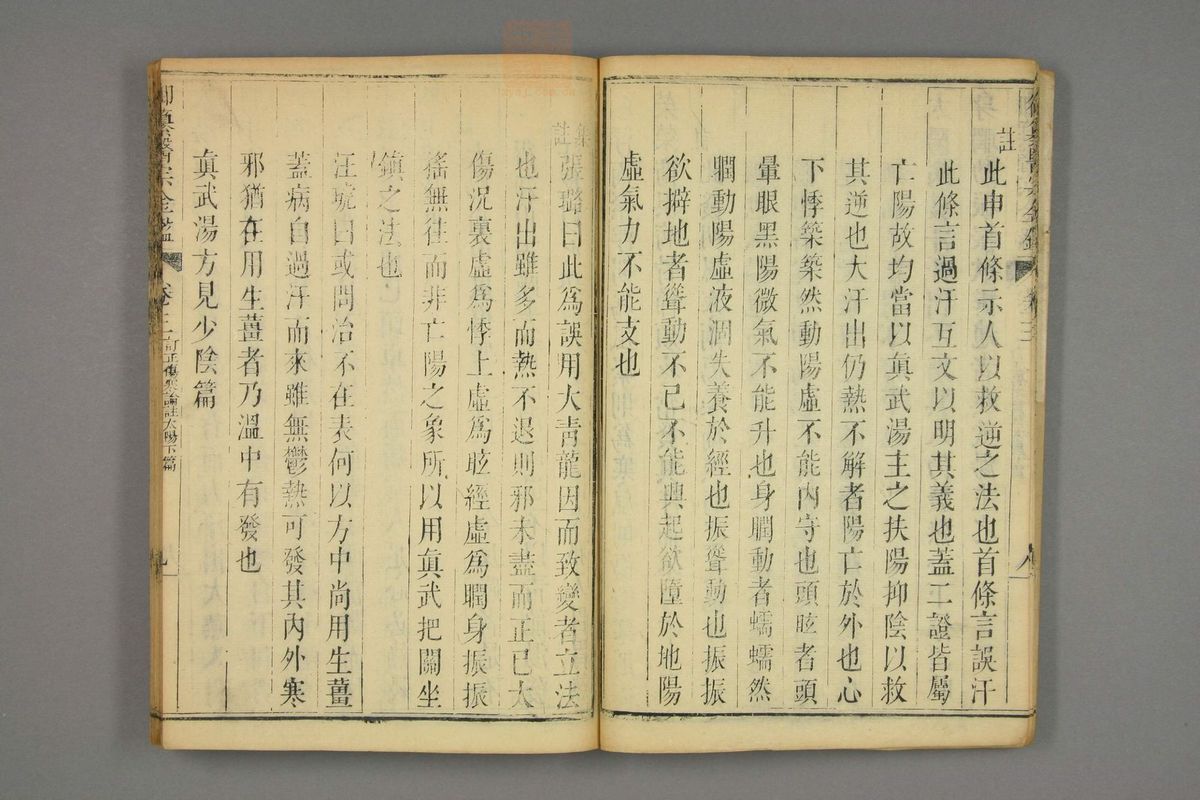 御纂醫宗金鑑 卷三 八
註
此申首條示人以救逆之法也首條言誤汗
此條言過汗互文以明其義也蓋二證皆屬
亡陽故均當以眞武湯主之扶陽抑陰以救
其逆也大汗出仍熱不解者陽亡於外也心
下悸築築然動陽虛不能內守也頭眩者頭
暈眼黑陽微氣不能升也身瞤動者蠕蠕然
瞤動陽虛液涸失養於經也振聳動也振振
欲擗地者聳動不已不能興起欲墮於地陽
虛氣力不能支也
集註
張璐曰此爲誤用大靑龍因而致變者立法
也汗出雖多而熱不退則邪未盡而正已大
傷況裏虛爲悸上虛爲眩經虛爲瞤身振振
搖無往而非亡陽之象所以用眞武把關坐
鎮之法也
汪琥曰或問治不在表何以方中尚用生薑
蓋病自過汗而來雖無鬱熱可發其內外寒
邪猶在用生薑者乃溫中有發也
眞武湯方見少陰篇
御纂醫宗金鑑 卷三 訂正傷寒論註太陽下篇 九